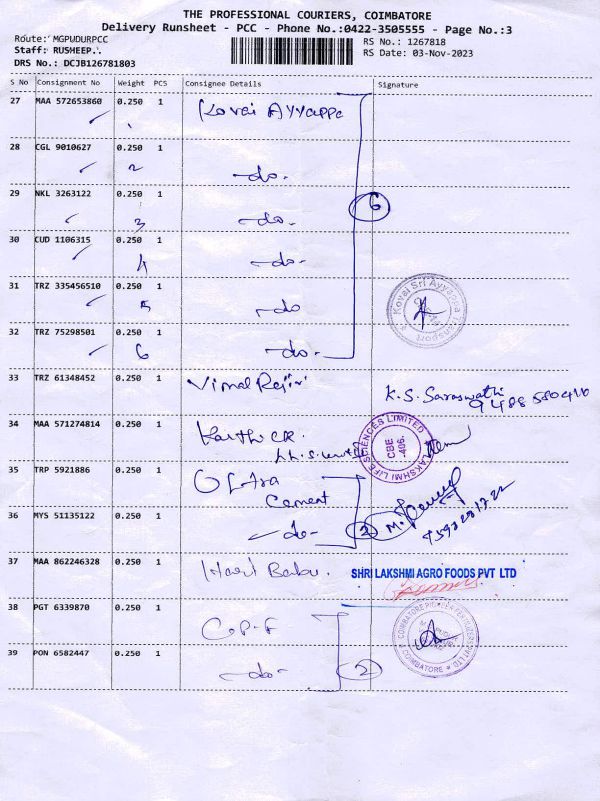 THE PROFESSIONAL COURIERS, COIMBATORE
Delivery Runsheet - PCC - Phone No.:0422-3505555 - Page No.:3
Route: MGPUDURPCC
Staff: RUSHEEP..
DRS No.: DCJB126781803
RS No.: 1267818
RS Date: 03-Nov-2023
S No Consignment No Weight PCS Consignee Details Signature
27 MAA 572653860 0.250 1 Kovai Ayyappa
28 CGL 9010627 0.250 1
2 -do-
29 NKL 3263122 0.250 1 6
3 -do-
30 CUD 1106315 0.250 1
4 -do-
31 TRZ 335456510 0.250 1
5 -do
Kovai Sri Ayyappa Transport
32 TRZ 75298501 0.250 1
6 -do-
33 TRZ 61348452 0.250 1 K.S. Saraswathi
34 MAA 571274814 0.250 1
LAKSHMI LIFE SCIENCES LIMITED
CBE
-406.
35 TRP 5921886 0.250 1
Cement
36 MYS 51135122 0.250 1 -do- 2
37 MAA 862246328 0.250 1 Hari Babu.
SHRI LAKSHMI AGRO FOODS PVT LTD
38 PGT 6339870 0.250 1
39 PON 6582447 0.250 1
-do- 2
COIMBATORE